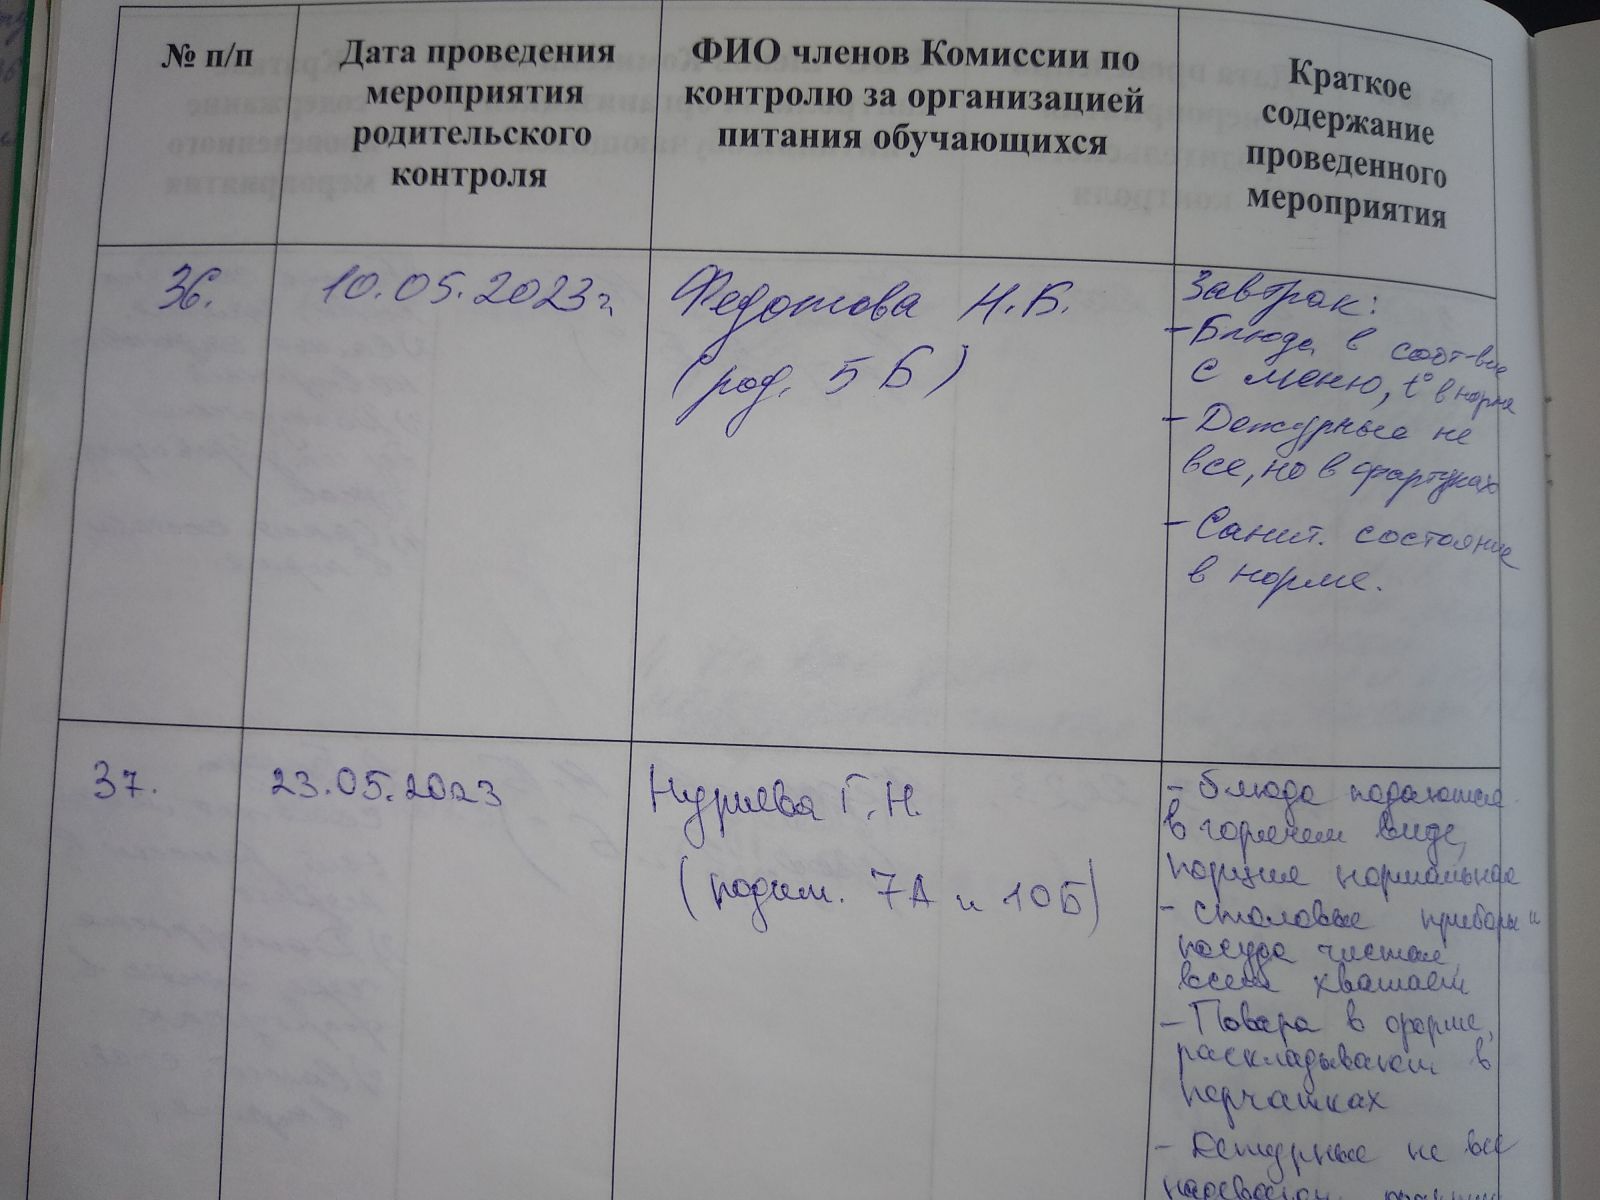 № п/п
Дата проведения
мероприятия
родительского
контроля
ФИО членов Комиссии по
контролю за организацией
питания обучающихся
Краткое
содержание
проведенного
мероприятия
36.
10.05.2023г.
Федотова Н.Б.
(род. 5 Б)
Завтрак:
- Блюда в соот-вие
с меню, t° в норме
- Дежурные не
все, но в фартуках
- Санит. состояние
в норме.
37.
23.05.2023
Нуриева Г.Н.
(родит. 7А и 10Б)
- блюда подаются
в горячем виде,
порция нормальная
- столовые приборы и
посуда чистая,
всем хватает
- Повара в форме,
раскладывают в
перчатках
- Дежурные не все